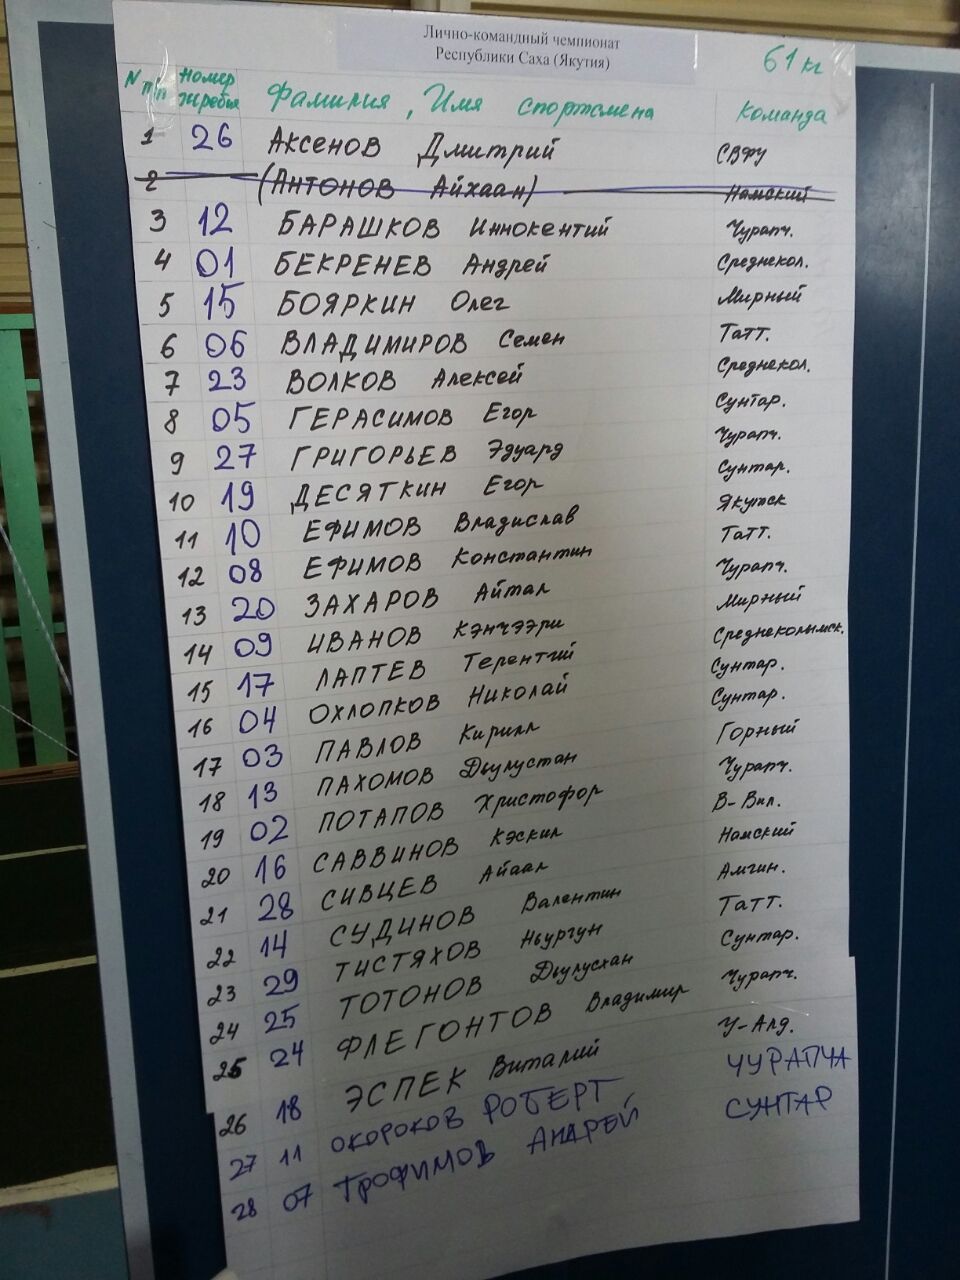 Лично-командный чемпионат
Республики Саха (Якутия)
61 кг
N п/п Номер жребья Фамилия, Имя спортсмена Команда
1 26 Аксенов Дмитрий СВФУ
2 (Антонов Айхаан) Намский
3 12 БАРАШКОВ Иннокентий Чурапч.
4 01 БЕКРЕНЕВ Андрей Среднекол.
5 15 БОЯРКИН Олег Мирный
6 06 ВЛАДИМИРОВ Семен Татт.
7 23 ВОЛКОВ Алексей Среднекол.
8 05 ГЕРАСИМОВ Егор Сунтар.
9 27 ГРИГОРЬЕВ Эдуард Чурапч.
10 19 ДЕСЯТКИН Егор Сунтар.
11 10 ЕФИМОВ Владислав Якутск
12 08 ЕФИМОВ Константин Татт.
13 20 ЗАХАРОВ Айтал Чурапч.
14 09 ИВАНОВ Кэнчээри Мирный
15 17 ЛАПТЕВ Терентий Среднеколымск.
16 04 ОХЛОПКОВ Николай Сунтар.
17 03 ПАВЛОВ Кирилл Сунтар.
18 13 ПАХОМОВ Дьулустан Горный
19 02 ПОТАПОВ Христофор Чурапч.
20 16 САВВИНОВ Кэскил В-Вил.
21 28 СИВЦЕВ Айаал Намский
22 14 СУДИНОВ Валентин Амгин.
23 29 ТИСТЯХОВ Ньургун Татт.
24 25 ТОТОНОВ Дьулусхан Сунтар.
25 24 ФЛЕГОНТОВ Владимир Чурапч.
26 18 ЭСПЕК Виталий У-Алд.
27 11 ОКОРОКОВ РОБЕРТ ЧУРАПЧА
28 07 ТРОФИМОВ АНДРЕЙ СУНТАР